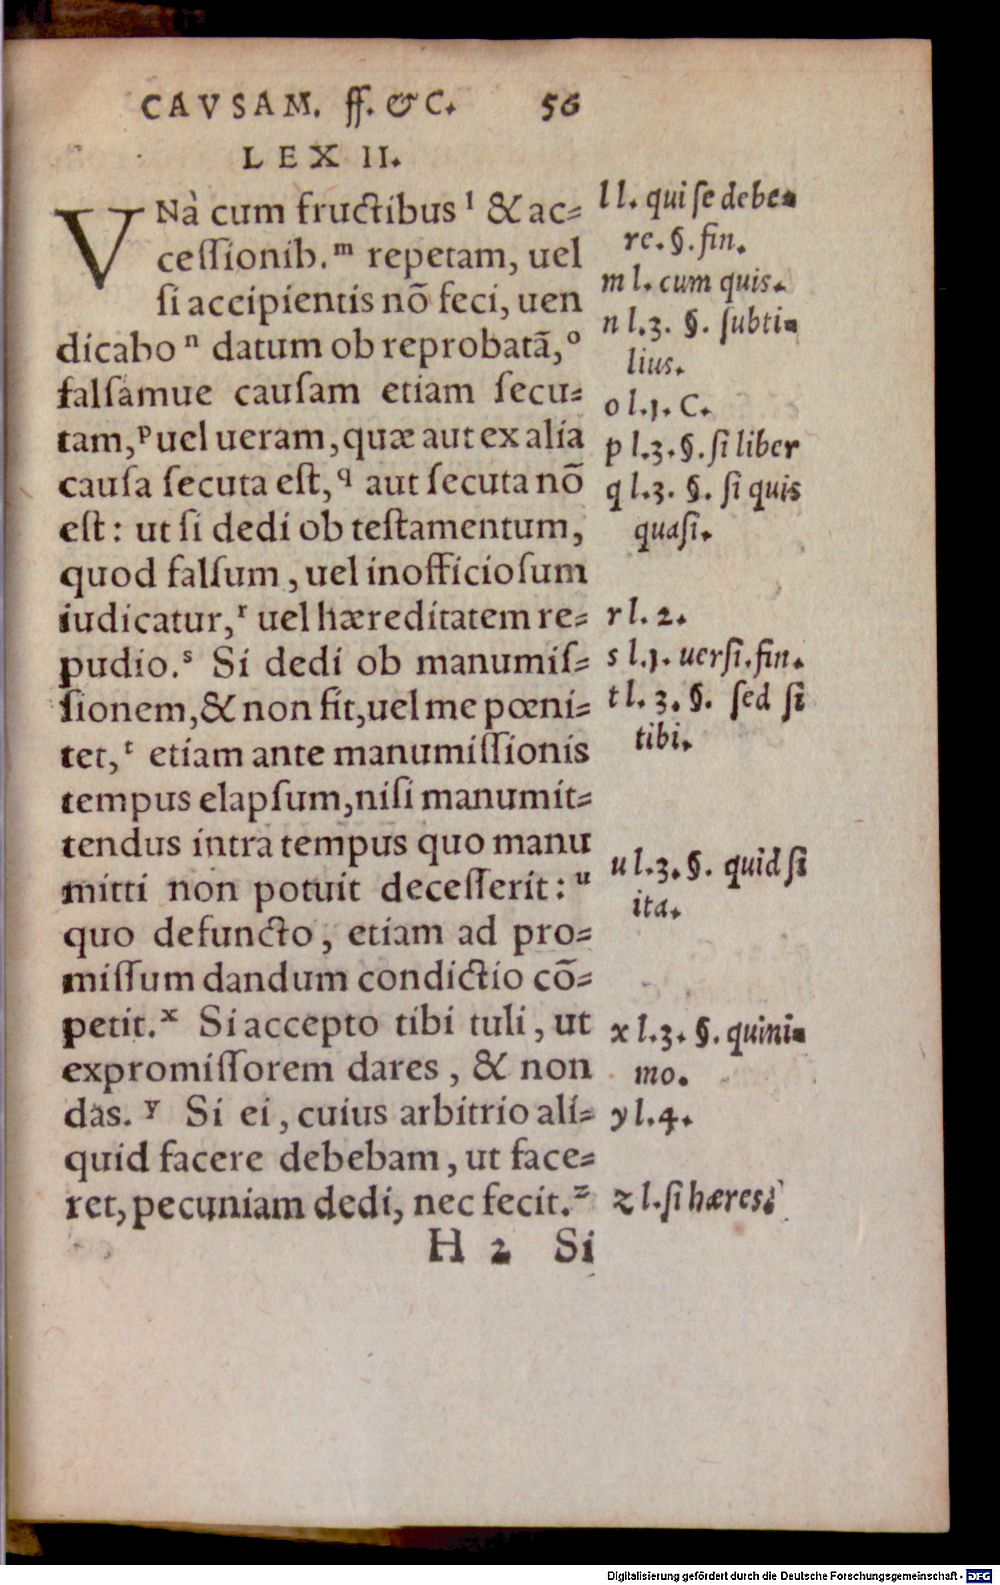 CAVSAM. ff. & C. 56
LEX II.
VNà cum fructibus ˡ & ac=
ceſſionib.ᵐ repetam, uel
ſi accipientis nõ feci, uen
dicabo ⁿ datum ob reprobatã,ᵒ
falſamue cauſam etiam ſecu=
tam,ᵖ uel ueram, quæ aut ex alia
cauſa ſecuta eſt,^q aut ſecuta nõ
eſt: ut ſi dedi ob teſtamentum,
quod falſum, uel inofficioſum
iudicatur,ʳ uel hæreditatem re=
pudio.ˢ Si dedi ob manumiſ=
ſionem, & non fit, uel me pœni=
tet,ᵗ etiam ante manumiſſionis
tempus elapſum, niſi manumit=
tendus intra tempus quo manu
mitti non potuit deceſſerit:ᵘ
quo defuncto, etiam ad pro=
miſſum dandum condictio cõ=
petit.ˣ Si accepto tibi tuli, ut
expromiſſorem dares, & non
das.ʸ Si ei, cuius arbitrio ali=
quid facere debebam, ut face=
ret, pecuniam dedi, nec fecit.ᶻ
H 2 Si
l l. qui ſe debe=
re. §. fin.
m l. cum quis.
n l.3. §. ſubti=
lius.
o l.1. C.
p l.3. §. ſi liber
q l.3. §. ſi quis
quaſi.
r l. 2.
s l.1. uerſi. fin.
t l. 3. §. ſed ſi
tibi.
u l.3. §. quid ſi
ita.
x l.3. §. quini=
mo.
y l.4.
z l. ſi hæres.
Digitalisierung gefördert durch die Deutsche Forschungsgemeinschaft - DFG